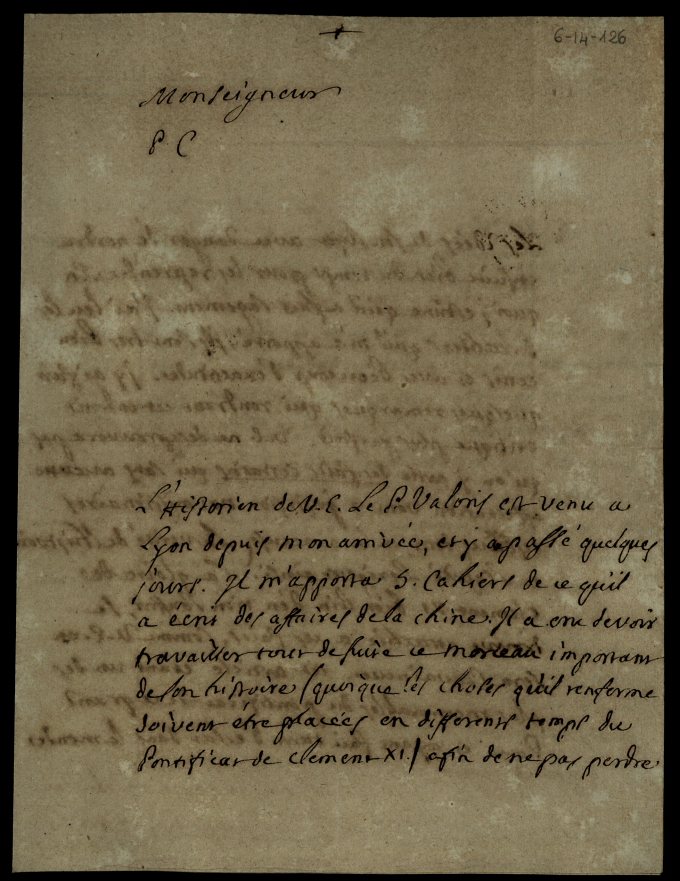 6-14-126
Monseigneur
P C
L'Historien de V. E. Le P. Valoris est venu a
Lyon depuis mon arrivée, et y a passé quelques
jours. Il m'apporta 5. Cahiers de ce qu'il
a écrit des affaires de la chine. Il a cru devoir
travailler tout de suite ce morceau important
de son histoire (quoique les choses qu'il renferme
doivent être placées en differents temps du
Pontificat de clement XI.) afin de ne pas perdre